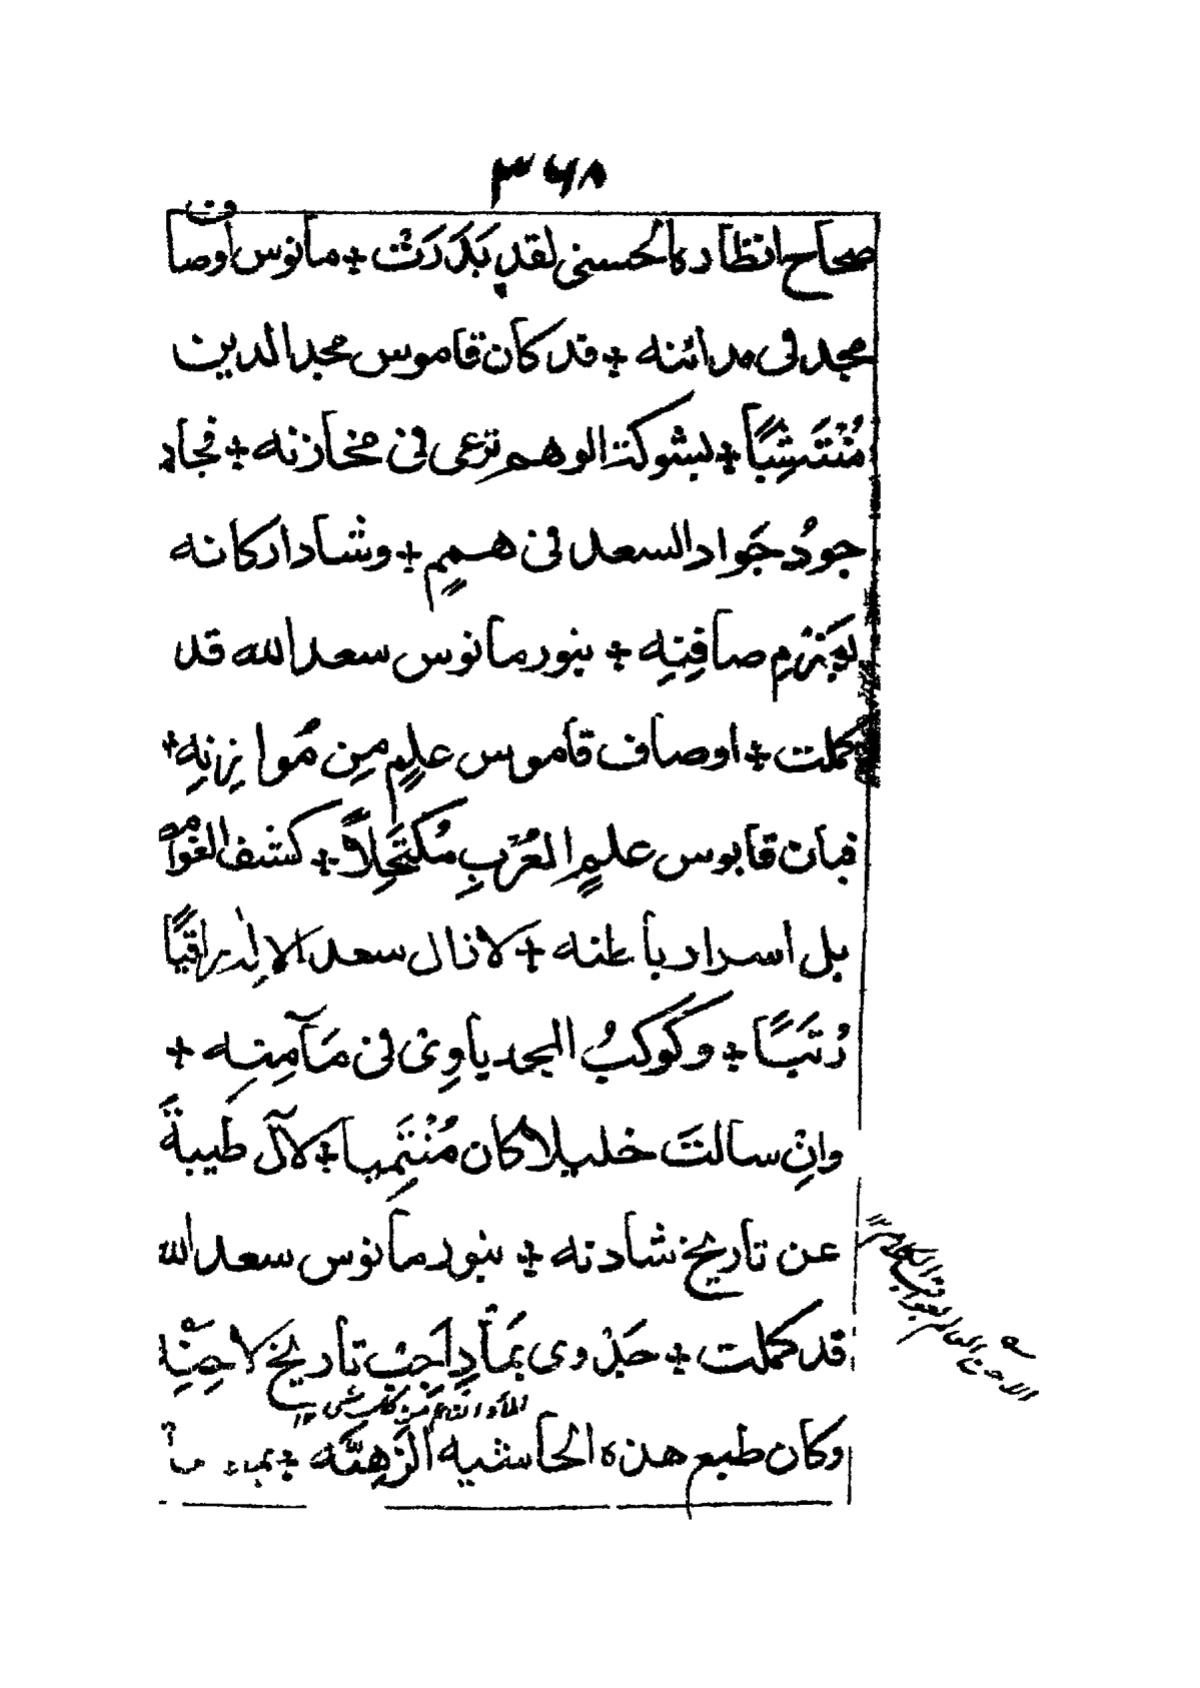 ٣٦٨
صحاح انظاره الحسنى لقد بَدَرَتْ + مانوس اوصاف
مجد فى مدائنه + قد كان قاموس مجد الدين
مُنْتَشِبًا + بشوكت الوهم ترعى فى مخازنه + فجاد
جودُ جَواد السعد فى هممٍ + وشاد اركانه
صافِنِهِ + بنور مانوس سعد الله قد
كملت + اوصاف قاموس علمٍ مِن مُوازِنِهِ +
فبان قابوس علمِ العُرْبِ مُكتَحِلاً + كشف الغوامض
بل اسرار باطنه + لا زال سعد الاله راقيًا
رُتَبًا + وكوكبُ المجد ياوِىْ فى مَآمِنِه +
وانْ سالتَ خليلا كان مُنْتَمِيا + لآل طيبةَ
عن تاريخ شادنه + بنور مانوس سعد الله
قد كملت + وى تاريخ لا
وكان طبع هذه الحاشية +